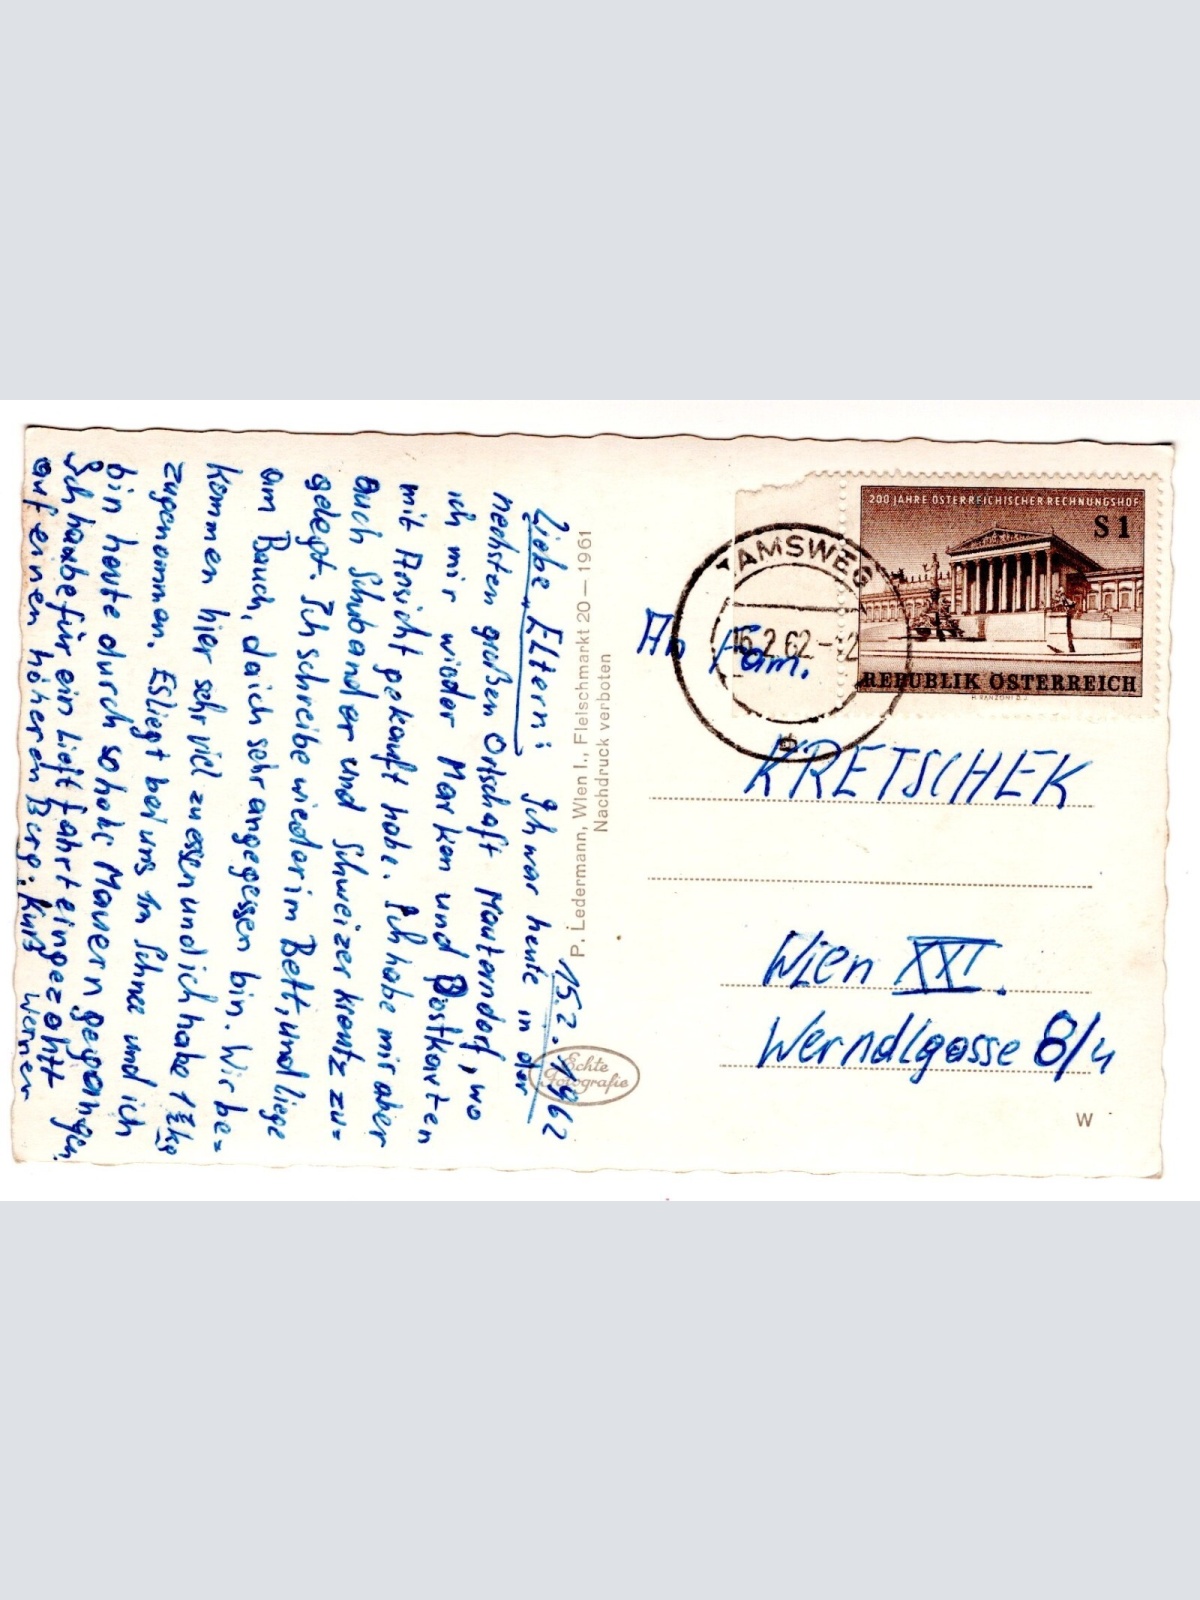 15.2.1962
Liebe Eltern! Ich war heute in der
nechsten großen Ortschaft Mauterndorf, wo
ich mir wieder Marken und Postkarten
mit Ansicht gekauft habe. Ich habe mir aber
auch Schwander und Schweizer kreutz zu=
gelegt. Ich schreibe wieder im Bett, und liege
am Bauch, da ich sehr angegessen bin. Wir be=
kommen hier sehr viel zu essen und ich habe 1½kg
zugenomman. Es liegt bei uns 1m Schnee und ich
bin heute durch so hohe Mauern gegangen.
Ich haabe für ein Lieft fahrt eingezahlt
auf einen höheren Berg. Kurt Werner
P. Ledermann, Wien I., Fleischmarkt 20 — 1961
Nachdruck verboten
Echte
Fotografie
200 JAHRE ÖSTERREICHISCHER RECHNUNGSHOF
S 1
REPUBLIK ÖSTERREICH
H. RANZONI D. J.
TAMSWEG
16.2.62-12
b
An Fam.
KRETSCHEK
Wien XXI.
Werndlgasse 8/4
W